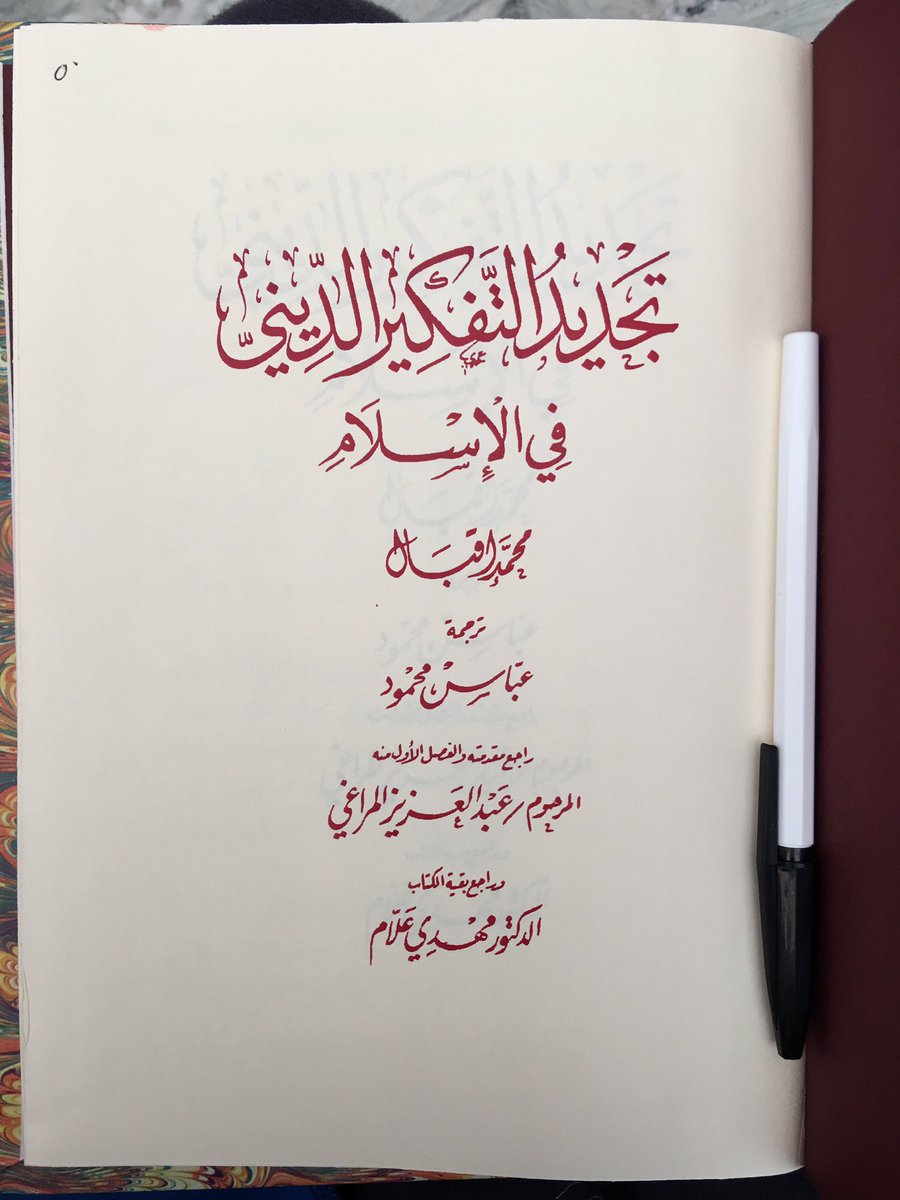 تَجْدِيدُ التَّفْكِيرِ الدِّينِيِّ
فِي الْإِسْلَامِ
محمَّد إقبَال
ترجمة
عبّاسْ محمُود
راجع مقدمته والفصل الأول منه
المرحوم / عَبْد العَزيز المراغي
وراجع بقية الكتاب
الدكتور مهْدِي عَلّام